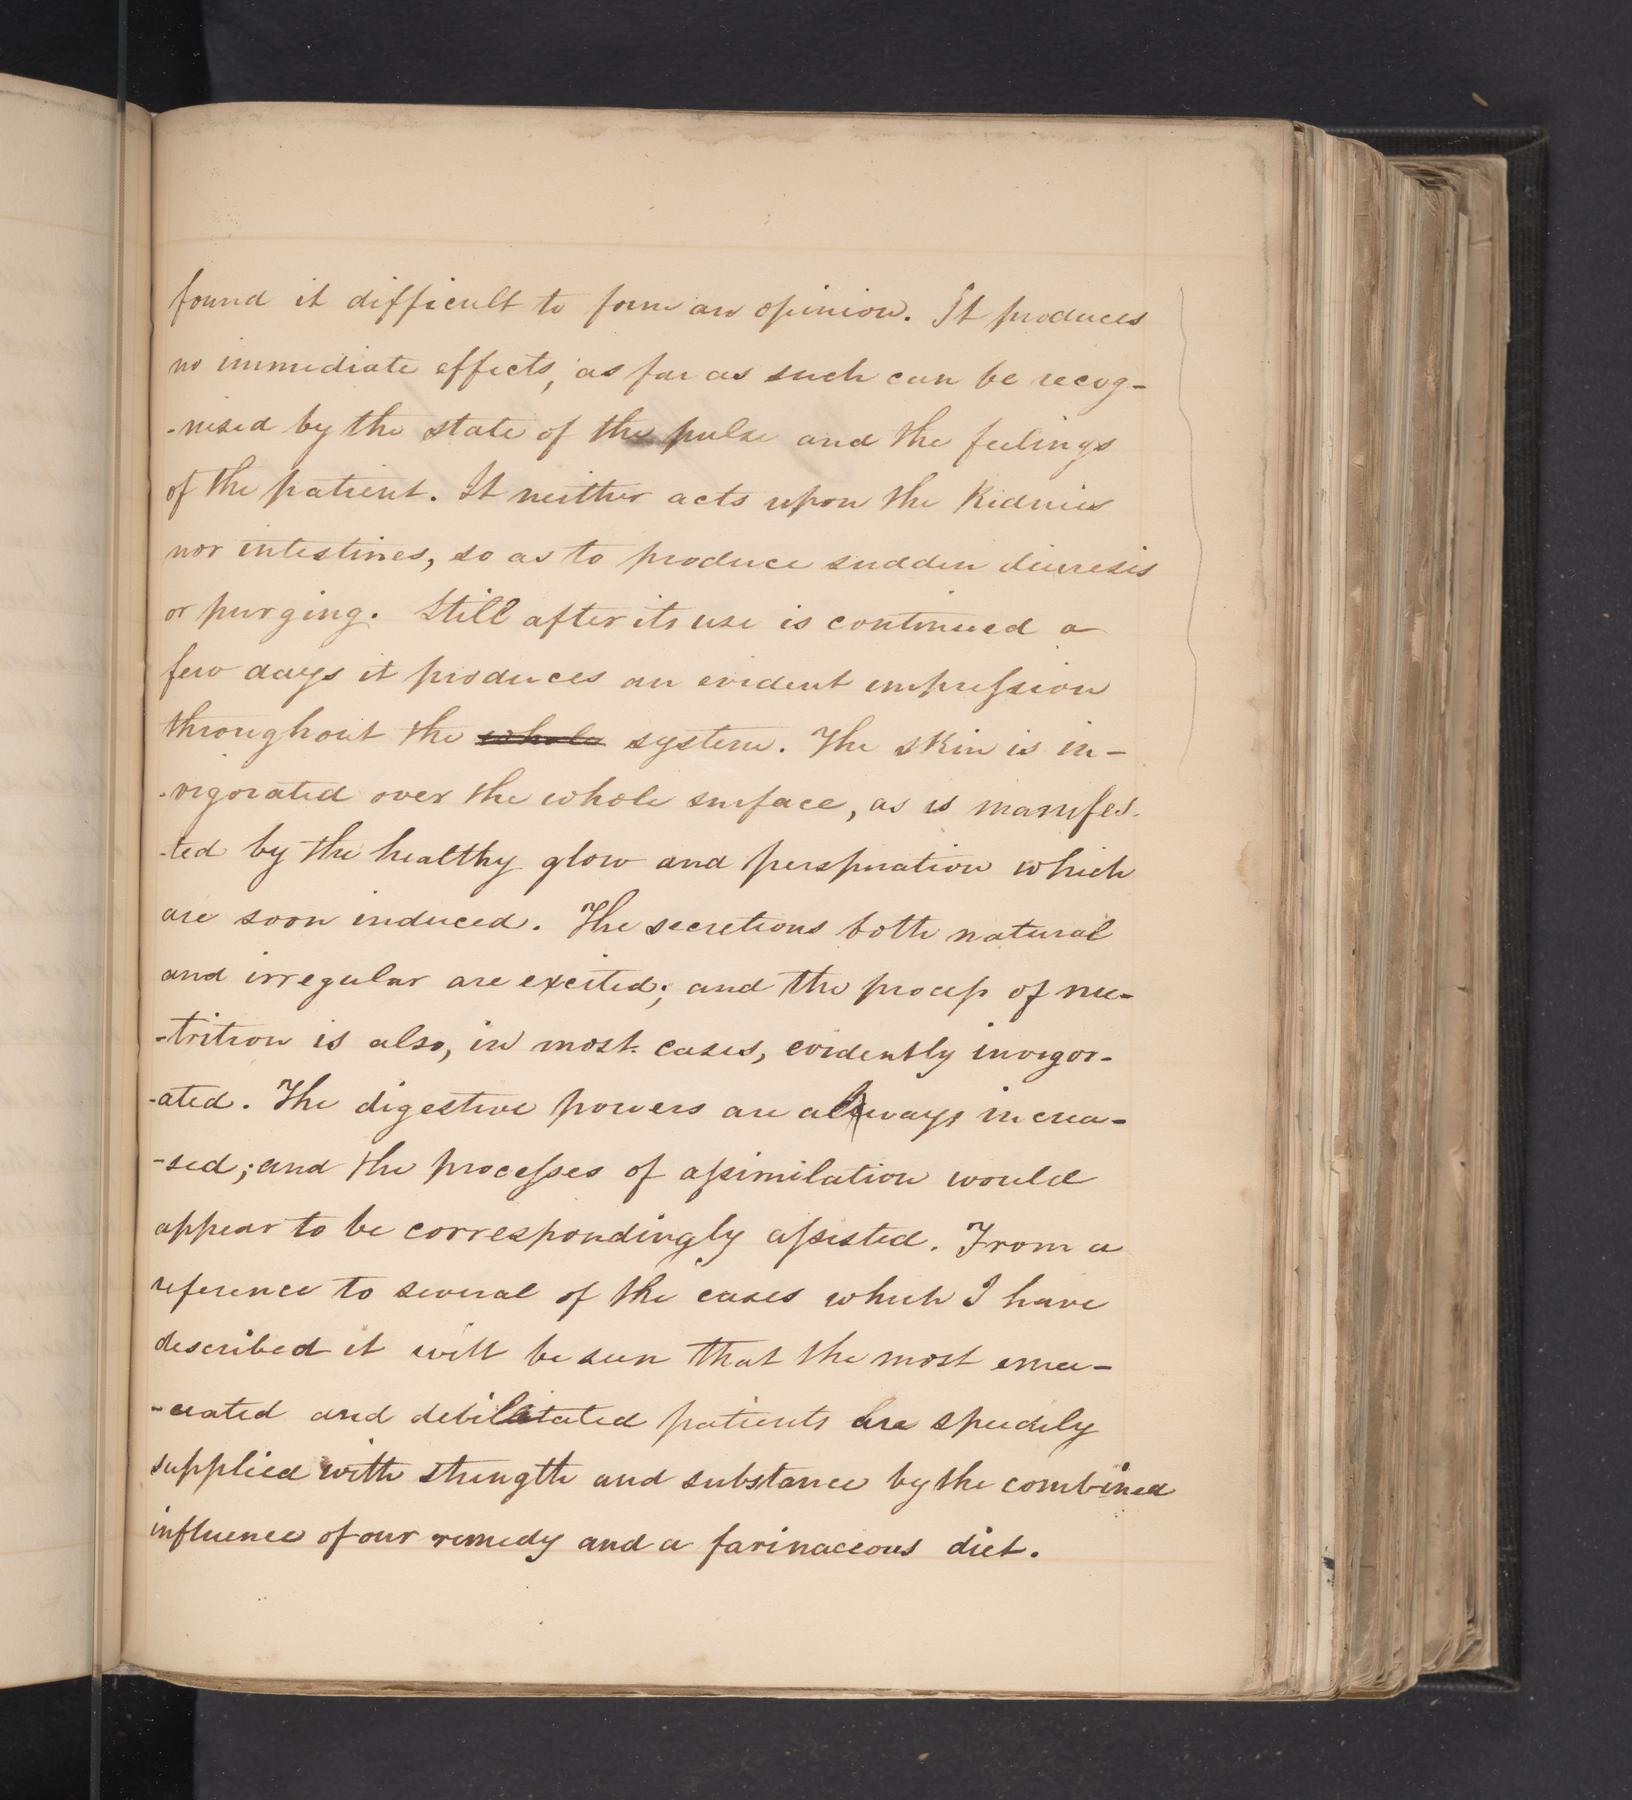 found it difficult to form an opinion. It produces
no immediate effects, as far as such can be recog-
-nised by the state of the pulse and the feelings
of the patient. It neither acts upon the Kidnies
nor intestines, so as to produce sudden diuresis
or purging. Still after its use is continued a
few days it produces an evident impression
throughout the whole system. The skin is in-
-vigorated over the whole surface, as is manifes-
-ted by the healthy glow and perspiration which
are soon induced. The secretions both natural
and irregular are excited; and the process of nu-
-trition is also, in most cases, evidently invigor-
-ated. The digestive powers are always increa-
-sed; and the processes of assimilation would
appear to be correspondingly assisted. From a
reference to several of the cases which I have
described it will be seen that the most ema-
-ciated and debilitated patients are speedily
supplied with strength and substance by the combined
influence of our remedy and a farinaceous diet.